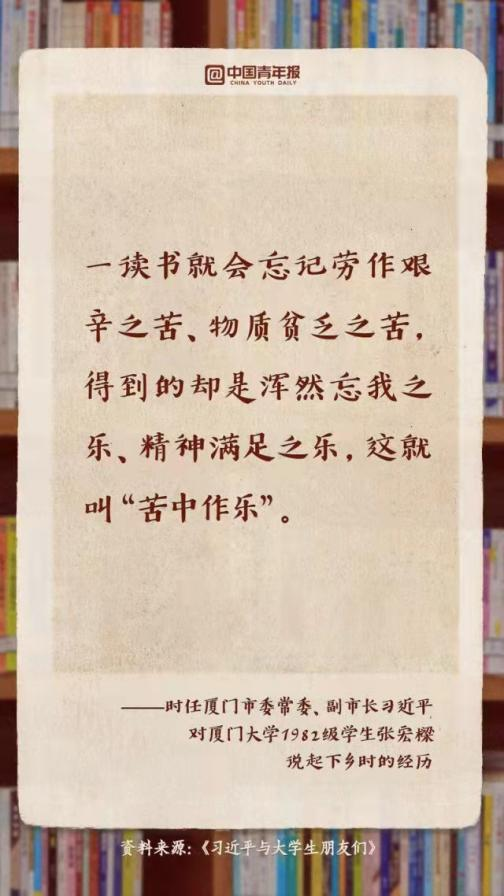 @中国青年报
CHINA YOUTH DAILY
一读书就会忘记劳作艰
辛之苦、物质贫乏之苦，
得到的却是浑然忘我之
乐、精神满足之乐，这就
叫“苦中作乐”。
——时任厦门市委常委、副市长习近平
对厦门大学1982级学生张宏樑
说起下乡时的经历
资料来源：《习近平与大学生朋友们》